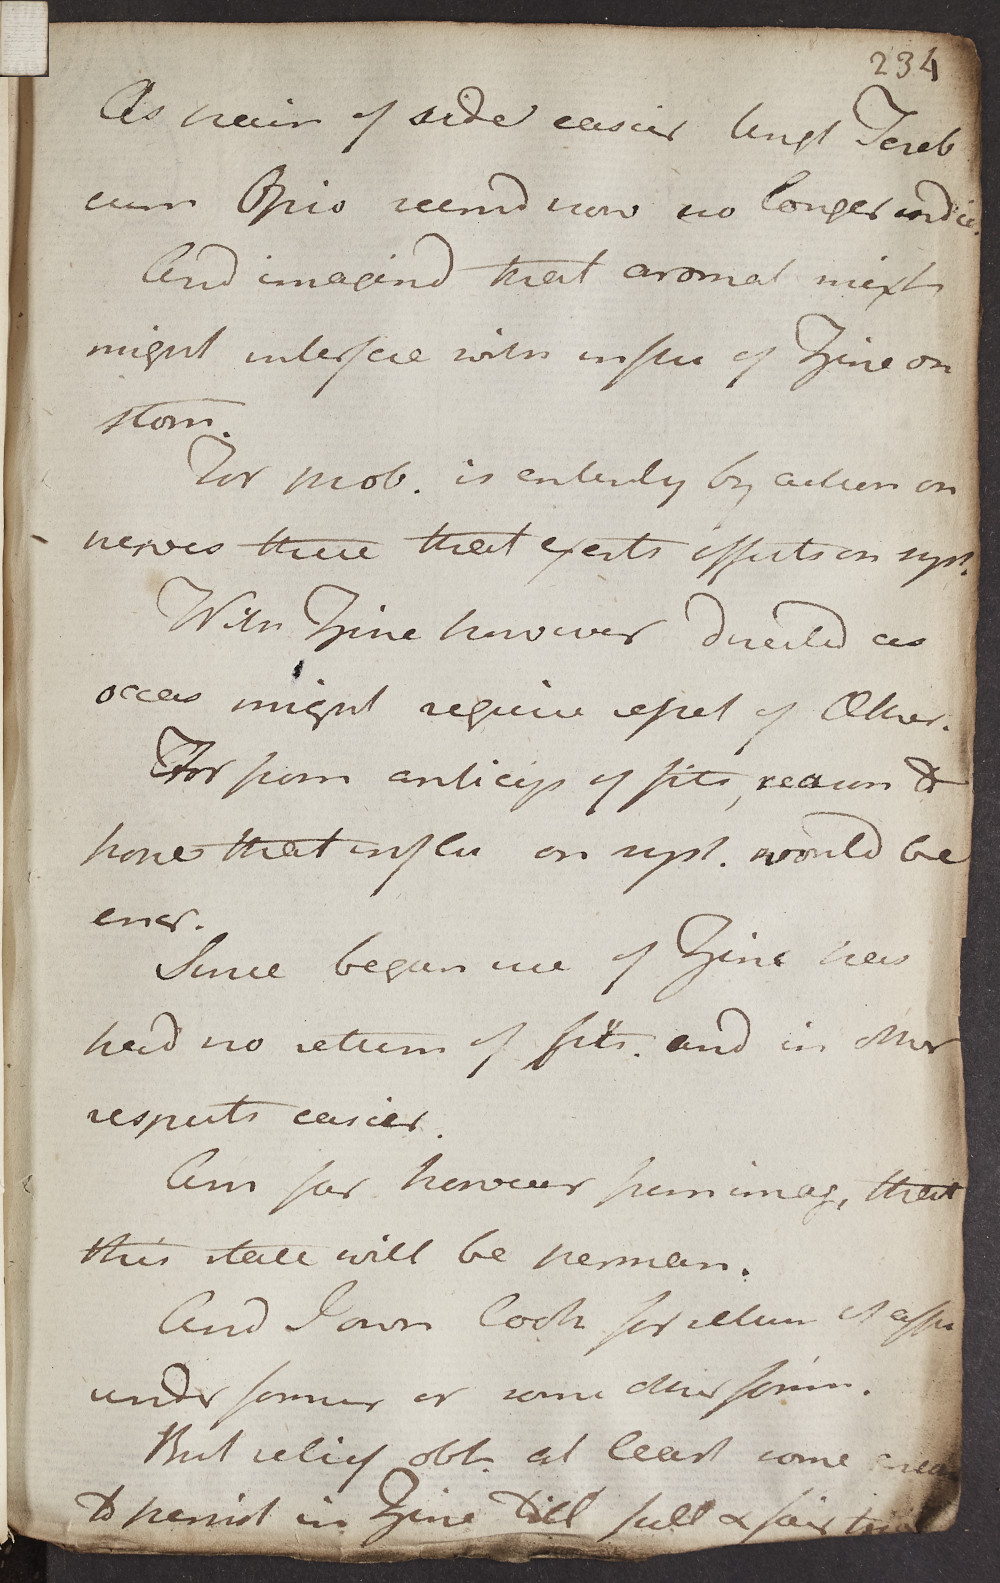 234
As pain of side easier Ungt Tereb
cum Opio seemd now no longer indic.
And imagind that aromat mixt
might interfere with influ of Zinc on
stom.
For prob. is entirely by action on
nerves there that exerts effects on syst.
With Zinc however directed as
occas might require repet of Æther.
For from anticip of fits, reason to
hope that influ on syst. would be
ener.
Since began use of Zinc has
had no return of fits. and in other
respects easier.
Am far however from imag, that
this state will be perman.
And I own look for return of affe
under former or some other form.
But relief obt. at least some
to persist in Zinc till full & fair